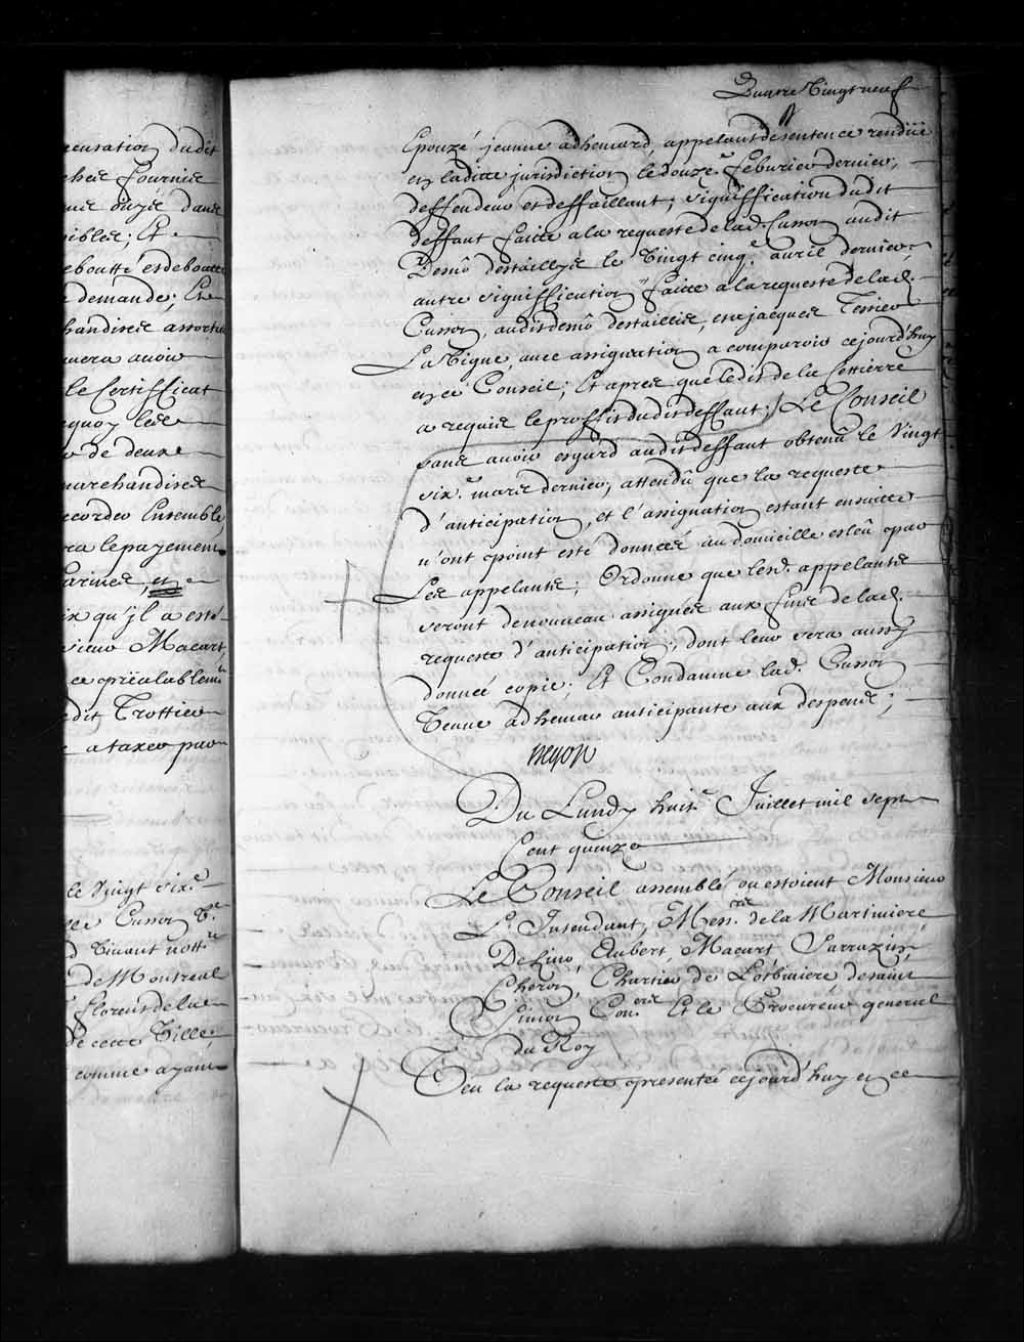 cusation dudit
chese fournise
mise ou ÿe dans
sibles; Et
eboutté et deboutte
e demande; Et
handises assortie
auera auoir
le Certifficat
quoy les
de deux
marchandises
accorder Ensemble,
ra le payement
arines, et
ix qu'jl a esté
sieur Macart,
ce prëalablemt
dit Trottier
a taxer par
le Vingt six.e
Cusson V.e
d Viuant nott.re
de Montreal
florens de la
de cette Ville;
comme ayant
Quatre Vingt neuf
Epouzé jeanne adhemard, appelants de sentence rendüe
en ladite jurisdiction le douze.e feburier dernier,
deffendeur et deffaillant; signiffication dudit
deffaut faitte a la requeste de lad. Cusson audit
Demô destaillyse le Vingt cinq.e auril dernier,
autre signiffication faitte a la requeste de lad.
Cusson, audit demô destaillise, et a jacques Tessier
La Vigne, auec assignation a comparoir cejourd'huy
en ce Conseil; Et apres que ledit de la Cetierre
a requis le proffit dudit deffaut; / Le Conseil
sans auoir esgard audit deffaut obtenû le Vingt
six.e mars dernier, attendû que la requeste
d'anticipation, et l'assignation estant ensuitte
n'ont point esté donnees au domicille esleû par
Les appelants; Ordonne que lesd. appelants
seront denouueau assignés aux fins de lad.
requeste d'anticipation; dont leur sera aussy
donneé copie; Et Condamne lad. Cusson
Veuue adhemar anticipante aux despens;
Begon
Du Lundy huit.e Juillet mil sept
Cent quinze
Le Conseil assemblé ou estoient Monsieur
L'Intendant, Mess.rs de la Martiniere
De Lino, Aubert, Macart, Sarrazin,
Cheron, Chartier de Lotbiniere de saint
Simon Con.ers Et le Procureur general
du Roy
Veu la requeste presentée cejourd'huy en ce